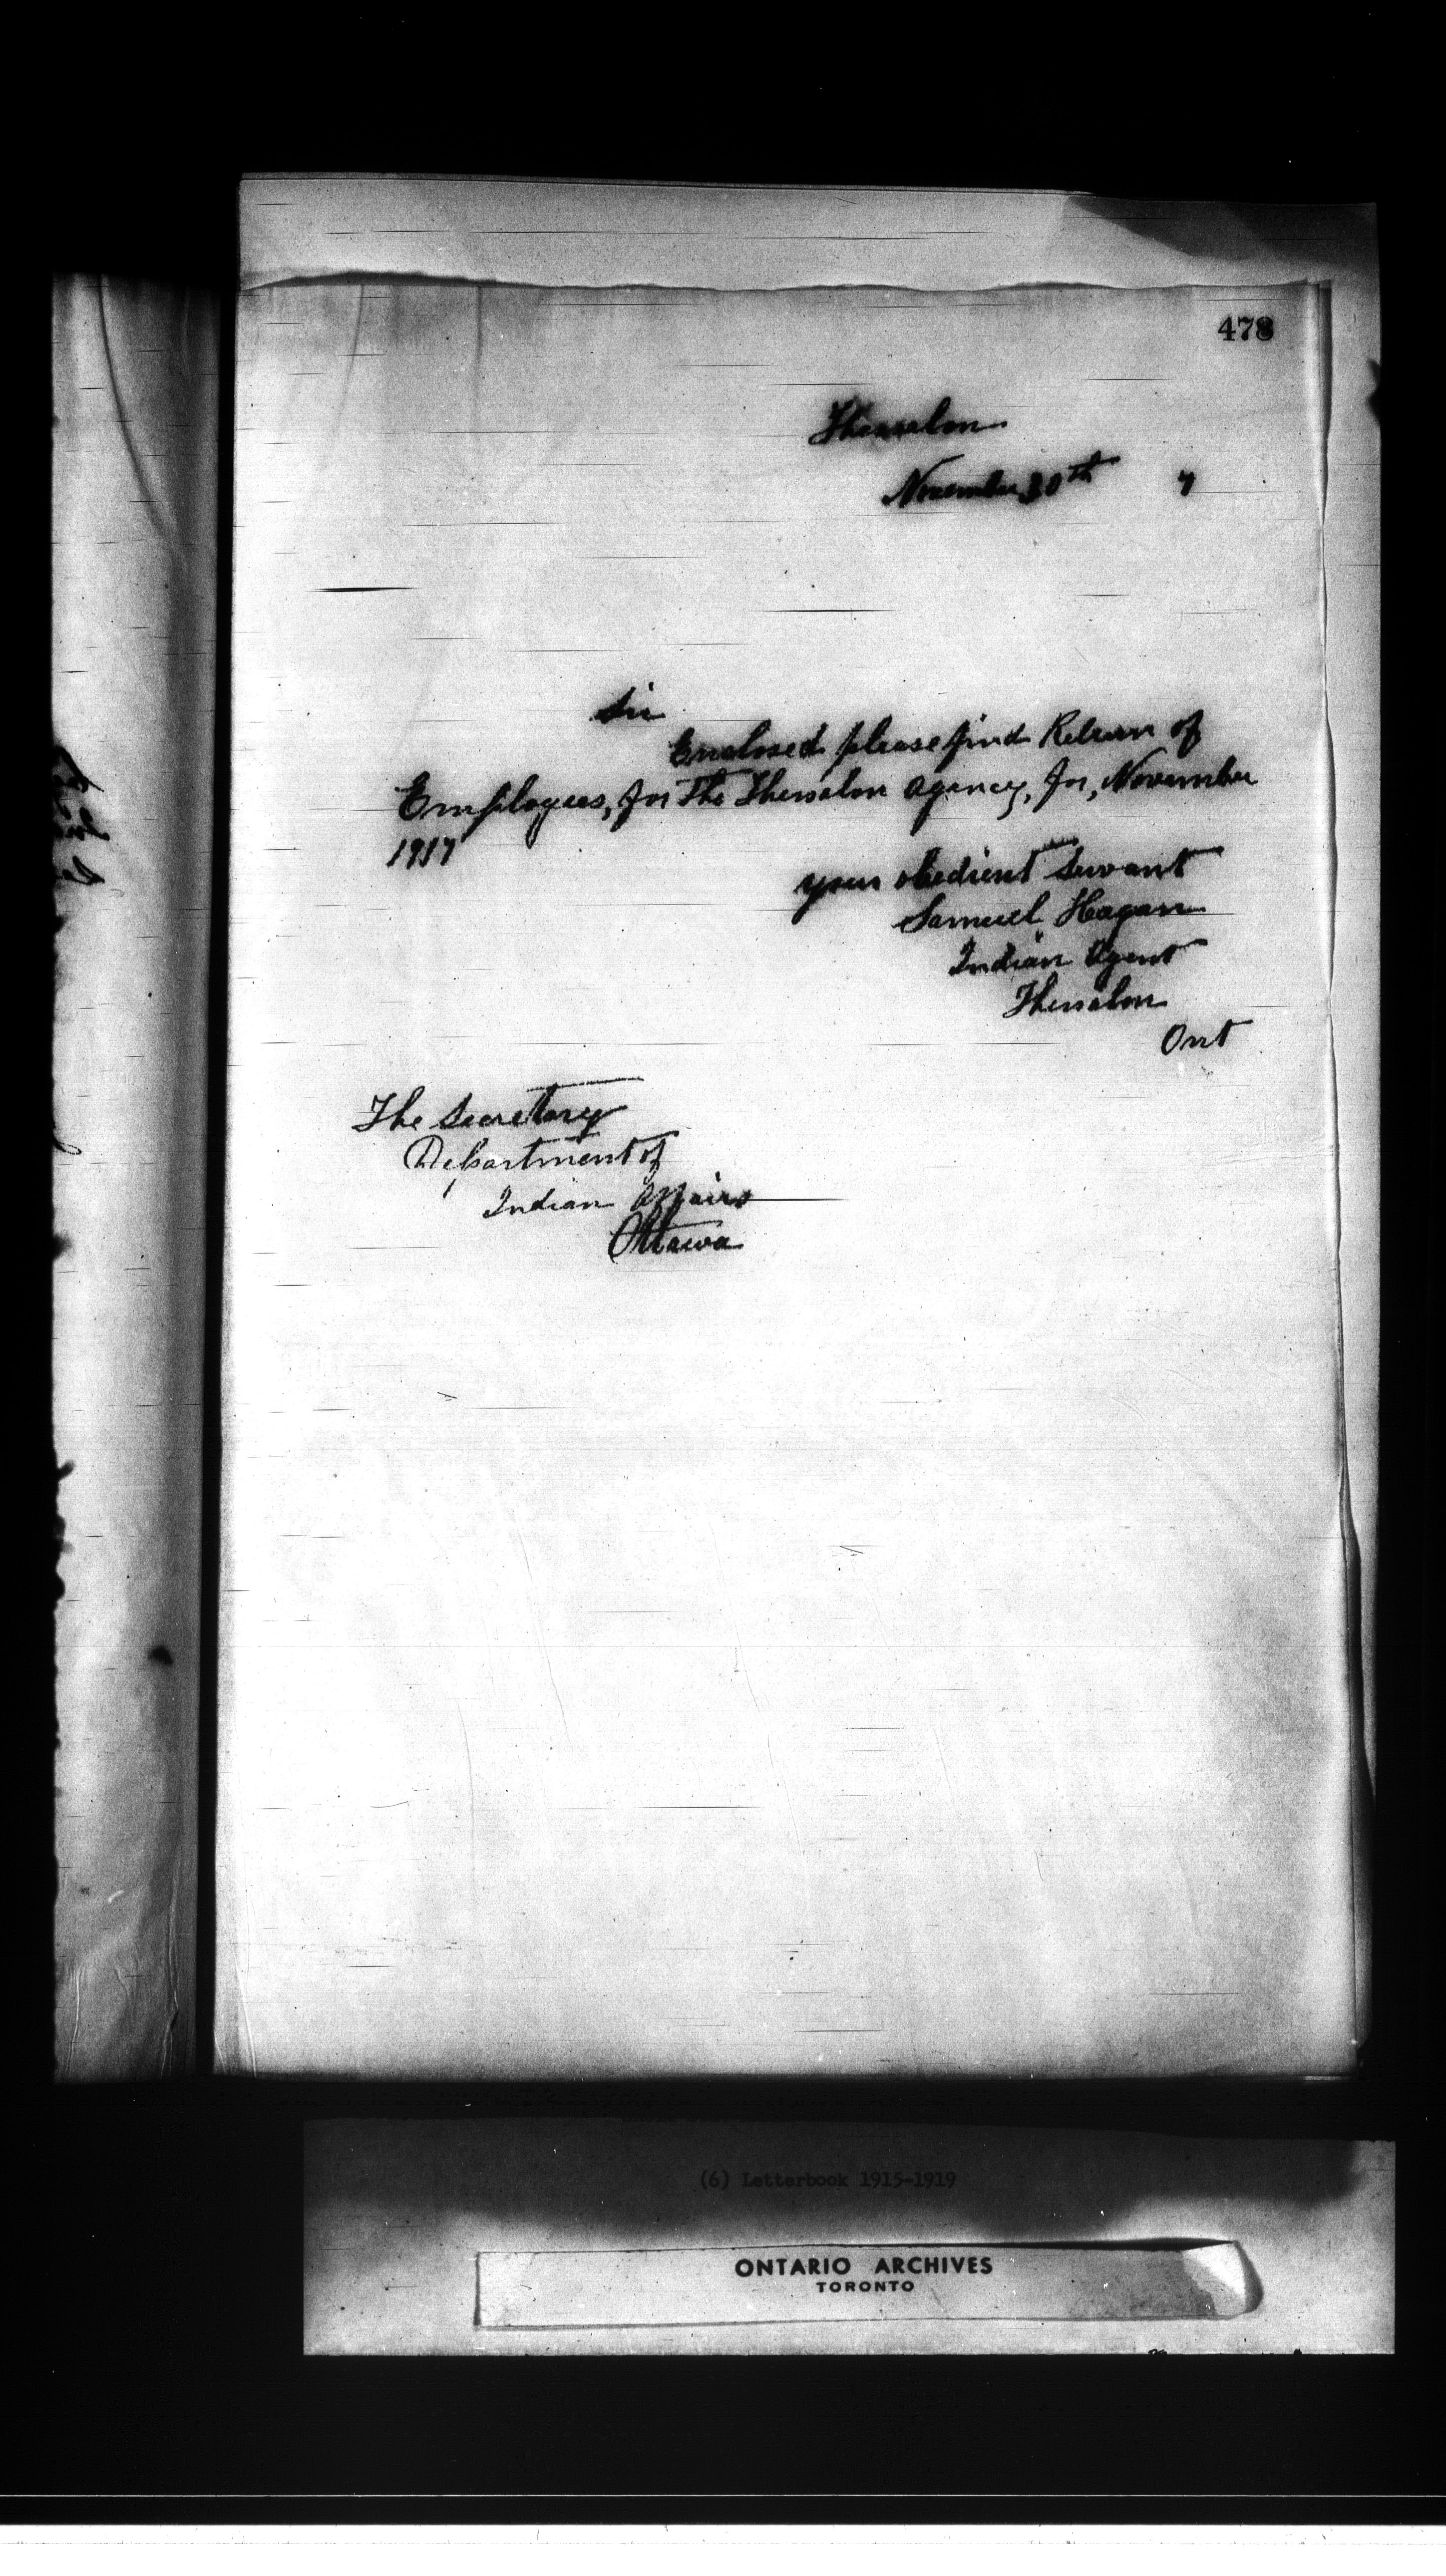 478
Thessalon
November 30th 7
Sir
Enclosed please find Return of
Employees, for The Thessalon Agency, for, November
1917
your obedient Servant
Samuel Hagan
Indian Agent
Thessalon
Ont
The Secretary
Department of
Indian Affairs
Ottawa
(6) Letterbook 1915-1919
ONTARIO ARCHIVES
TORONTO